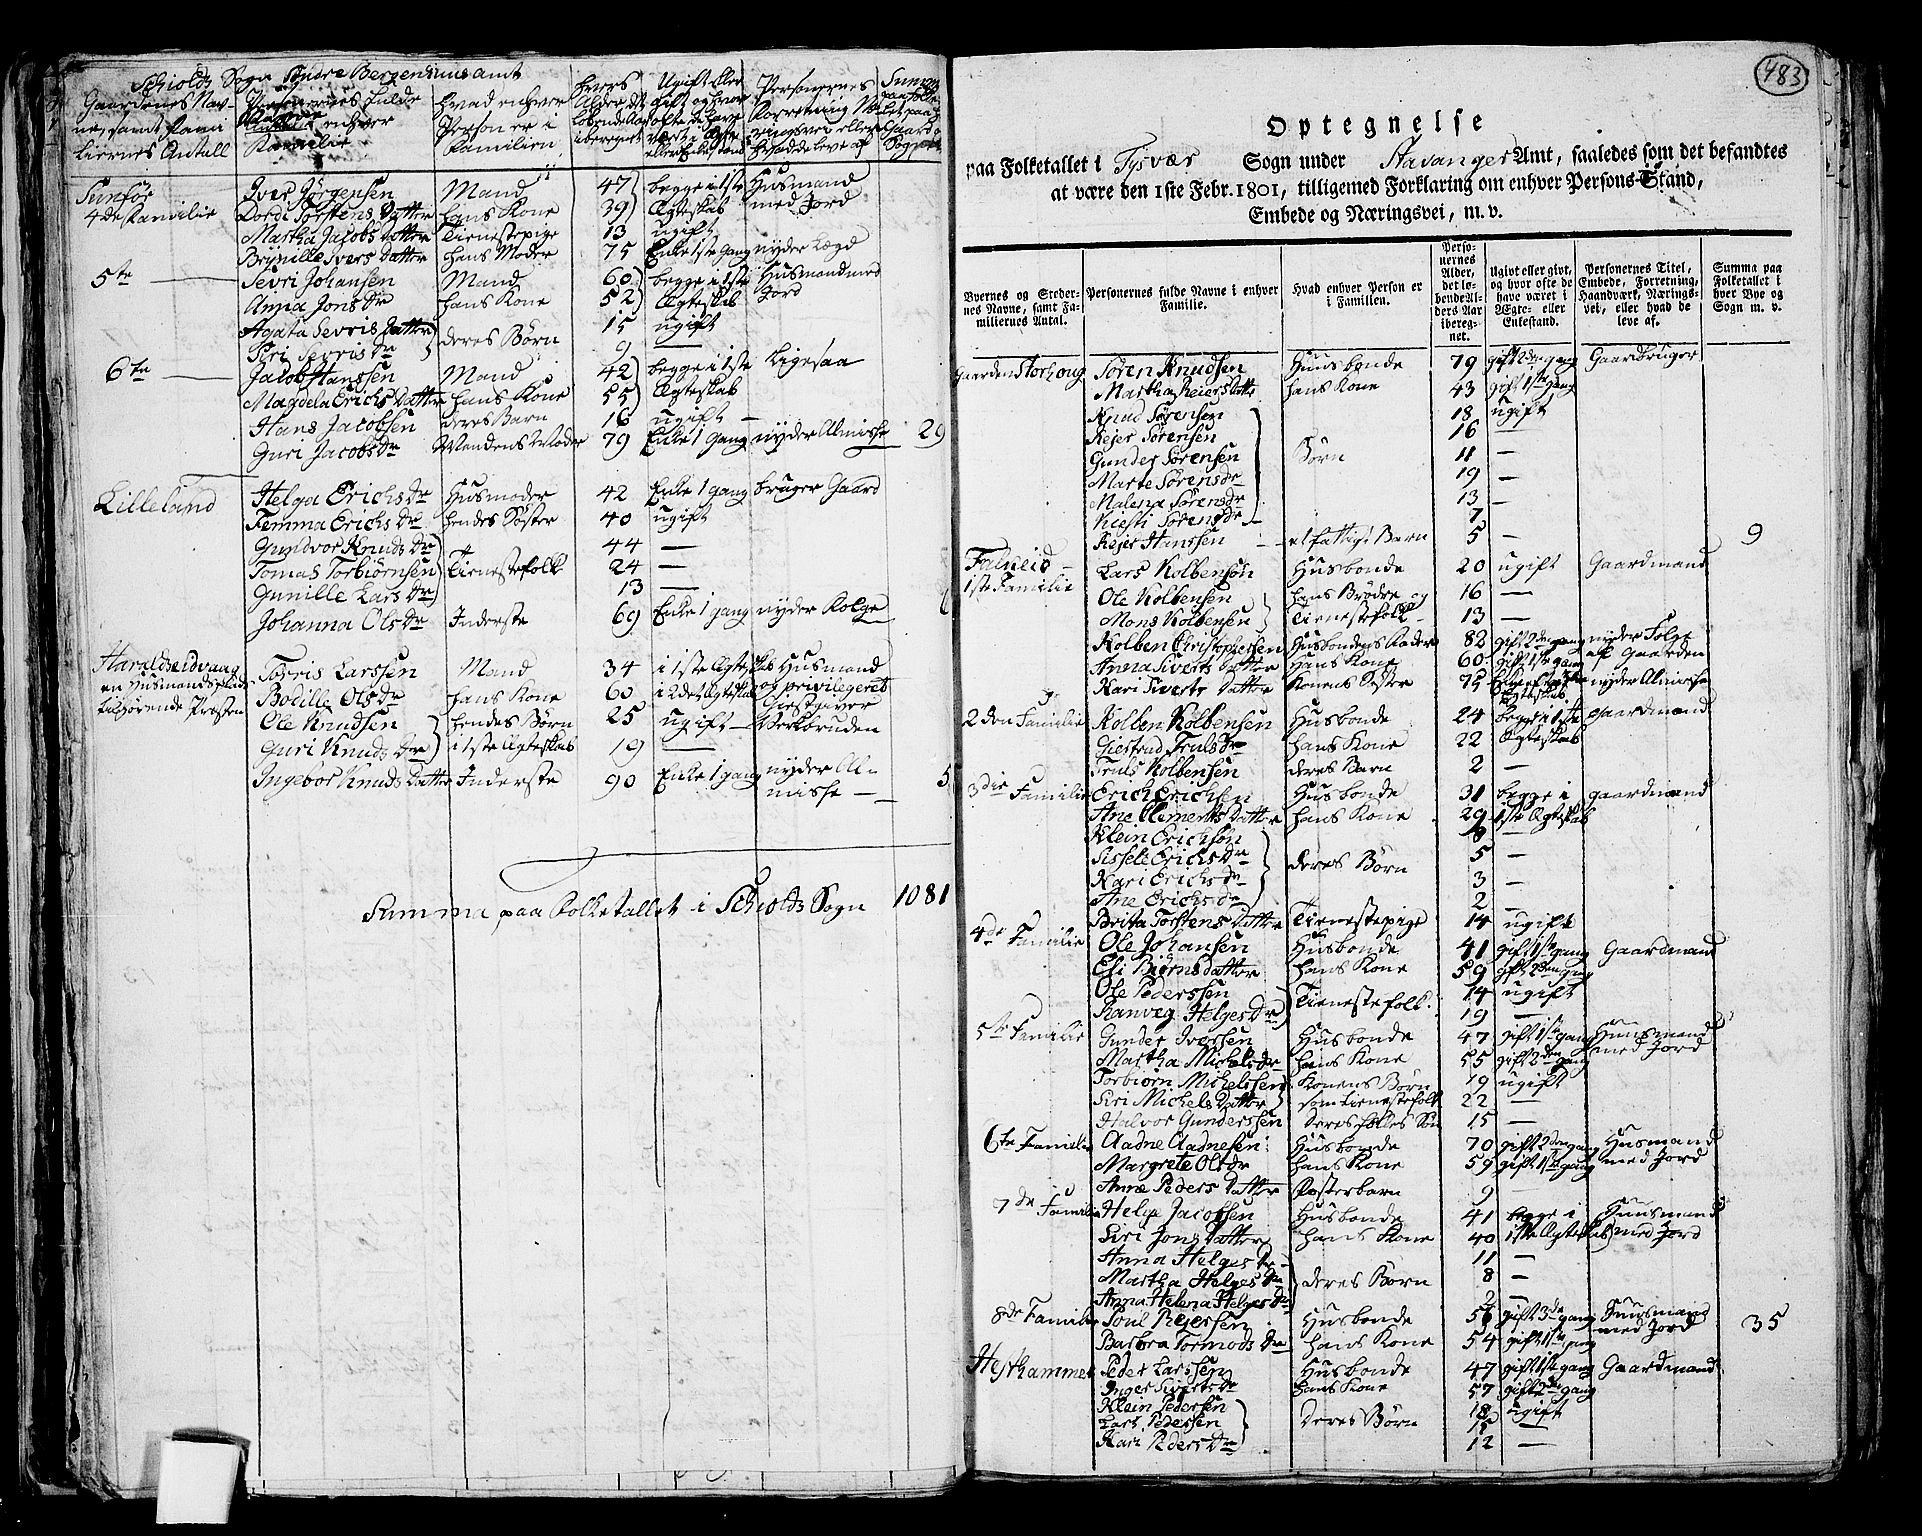 Schiolds Sogn Søndre Bergenhuus amt
Gaardenes Nav-
ne, samt Fami
liernes Antall
Personernes fulde
Navne enhver
Familie
hvad enhver
Person er i
Familien
hvers
Alder det
løbende Aar
iberegnet
Ugift eller
gift og hvor
ofte de have
været i Ægte
eller Enkestand
Personernes
Forretning Næ-
ringsvei eller
hvad de leve af
Summa
paa Folke
Gaard
Sogn
Sunfør Iver Jørgensen Mand 47 begge i 1ste Husmand
4de Familie Dordi Torstens Datter hans Kone 39 Ægteskab med Jord
Martha Jacobs Datter Tienestepige 13 ugift
Brynille Ivers Datter hans Moder 75 Enke 1ste gang nyder Lægd
5te Sevri Johansen Mand 60 begge i 1ste Husmand med
Anna Jons Dr hans Kone 52 Ægteskab Jord
Agata Sevris Datter deres Børn 15 ugift
Siri Sevris Dr 9 —
6te Jacob Hanssen Mand 42 begge i 1ste Ligesaa
Magdela Erichs Datter hans Kone 55 Ægteskab
Hans Jacobsen deres Barn 16 ugift —
Guri Jacobs Dr Mandens Moder 79 Enke 1 gang nyder Almisse 29
Lilleland Helga Erichs Dr Husmoder 42 Enke 1 gang bruger Gaard
Femma Erichs Dr hendes Søster 40 ugift
Gundvor Knuds Dr 44 —
Tomas Torbiørnsen Tienestefolk 24 —
Gunille Lars Dr 13 —
Johanna Ols Dr Inderste 69 Enke 1 gang nyder Folge 6
Haraldseidvaag Torris Larssen Mand 34 i 1ste Ægteskab Husmand
en Husmandsplads Bodille Ols Dr hans Kone 60 i 2det Ægteskab og privilegeret
tilhørende Præsten Ole Knudsen hendes Børn 25 ugift — Giestgiver
Guri Knuds Dr i 1ste Ægteskab 19 —
Ingebor Knuds Datter Inderste 90 Enke 1 gang nyder Al- 5
misse —
Summa paa Folketallet i Schiolds Sogn 1081
483
Optegnelse
paa Folketallet i Tysvær Sogn under Stavanger Amt, saaledes som det befandtes
at være den 1ste Febr. 1801, tilligemed Forklaring om enhver Persons Stand,
Embede og Næringsvei, m. v.
Byernes og Steder-
nes Navne, samt Fa-
miliernes Antal.
Personernes fulde Navne i enhver
Familie.
Hvad enhver Person er
i Familien.
Perso-
nernes
Alder,
det lø-
bende Al-
ders Aar
ibereg-
net.
Ugivt eller givt,
og hvor ofte de
have været i
Ægte- eller
Enkestand.
Personernes Titel,
Embede, Forretning,
Haandværk, Nærings-
vei, eller hvad de
leve af.
Summa paa
Folketallet i
hver Bye og
Sogn m. v.
Gaarden Storhoug Søren Knudsen Huusbonde 79 gift 2den gang Gaardbruger
Martha Reiers Datter hans Kone 43 gift 1ste gang
Knud Sørensen 18 ugift
Rejer Sørensen 16 —
Gunder Sørensen Børn 11 —
Marte Sørens Dr 19 —
Malena Sørens Dr 13 —
Kiesti Sørens Dr 7
Rejer Hanssen et fattigt Barn 5 — 9
Falkeid Lars Kolbensøn Husbonde 20 ugift Gaardmand
1ste Familie Ole Kolbensøn hans Brødre og 16 —
Mons Kolbensøn Tienestefolk 13 —
Kolben Christophersen Husbondens Fader 82 gift 2den gang nyder Folge
Anna Siverts Datter hans Kone 60 gift 1ste gang af Gaarden
Kari Siverts Datter Konens Søster 75 nyder Almisse
2den Familie Kolben Kolbensen Husbonde 24 begge i 1ste Gaardmand
Giertrud Truls Dr hans Kone 22 Ægteskab
Truls Kolbensen deres Barn 2 —
3die Familie Erich Erichsen Husbonde 31 begge i Gaardmand
Ane Clements Datter hans Kone 29 1ste Ægteskab
Klein Erichsøn 8 —
Sisseli Erichs Dr deres Børn 5 —
Kari Erichs Dr 3 —
Ane Erichs Dr 2 —
Brita Torstens Datter Tienestepige 14 ugift
4de Familie Ole Johansen Husbonde 41 gift 1ste gang Gaardmand
Eli Biørns Datter hans Kone 59 gift 2den gang
Ole Pederssen Tienestefolk 14 ugift
Ranveg Helges Dr 19 —
5te Familie Gunder Iverssen Husbonde 47 gift 1ste gang Huusmand
Martha Michels Dr hans Kone 55 gift 2den gang med Jord
Torbiørn Michelssen Konens Børn 19 ugift
Siri Michels Datter som tienestefolk 22 —
Halvor Gunderssen deres fælles Søn 15 —
6te Familie Aadne Aadnesen Husbonde 70 gift 2den gang Husmand
Margrete Olsdr hans Kone 59 gift 1ste gang med Jord
Anne Peders Datter Fosterbarn 9
7de Familie Helge Jacobsen Husbonde 41 begge i Huusmand
Siri Jons Datter hans Kone 40 1ste Ægteskab med Jord
Anna Helges Dr 11 —
Martha Helges Dr deres Børn 8 —
Anna Helena Helges Dr 2 —
8de Familie Poul Rejerssen Husbonde 56 gift 3de gang Huusmand 35
Barbra Tormods Dr hans Kone 54 gift 1ste gang med Jord
Hesthammer Peder Larssen Husbonde 47 gift 1ste gang Gaardmand
Inger Siverts Dr hans Kone 57 gift 2de gang
Klein Pedersen 18 ugift
Lars Pedersen deres Børn 15 —
Kari Peders Dr 12 —